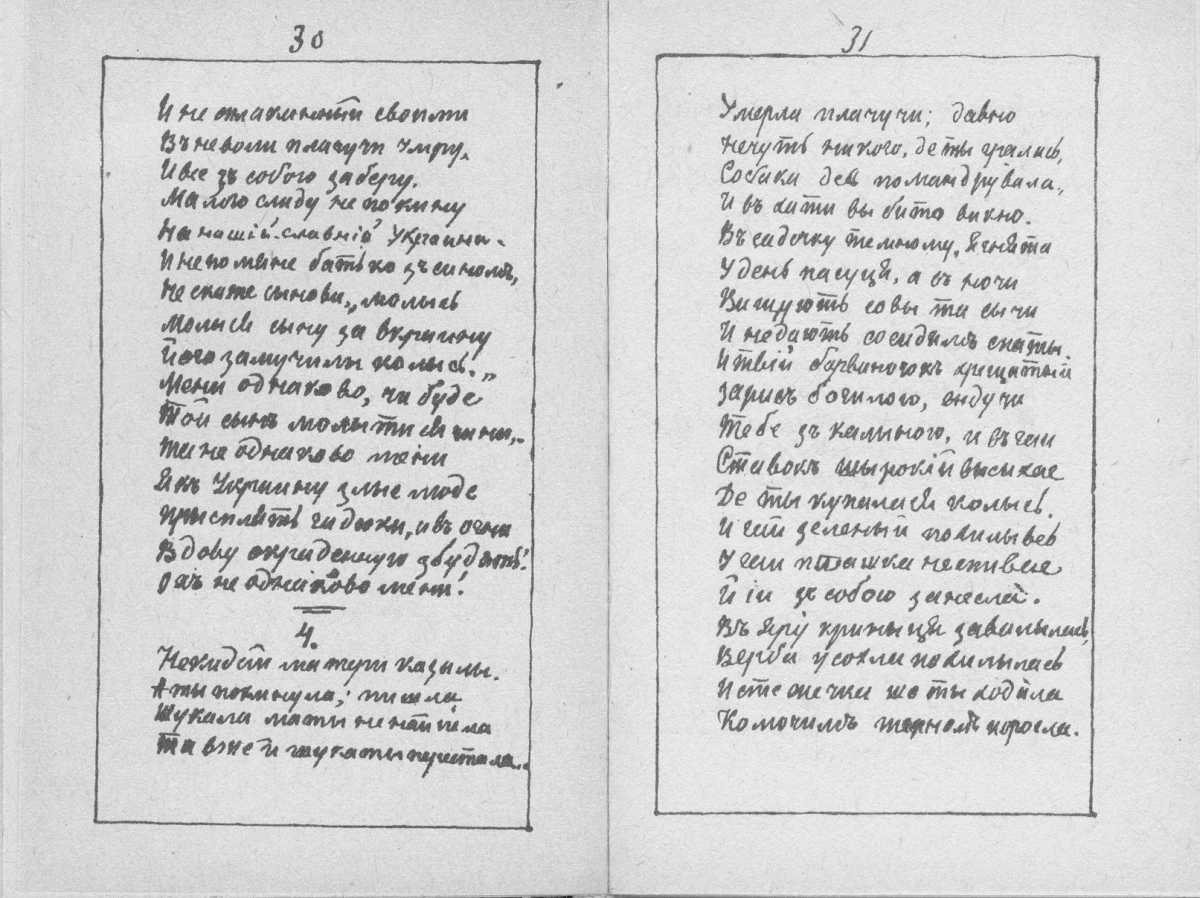 30
И не оплаканный своими
Въ неволи плачучи умру,
И все зъ собою заберу.
Малого слиду не покину
На нашій славній Украини.
И не помяне батько зъ синомъ,
Не скаже сынови, „молысь
Молыся сыну за вкраину
Його замучилы колысь.„
Мени однаково, чи буде
Той сынъ молытися чи ни,
Та не однаково мени
Якъ Украину злые люде
Прысплять гадюки, и въ огни
Вдову окраденную збудять!
Охъ не однаково мени!
4.
Не кидай матери казалы.
А ты покинула; пишла
Шукала маты не найшла
Та вже й шукаты перестала.
31
Умерла плачучи; давно
Нечуть никого, де ты гралась,
Собака десь помандрувала,
И въ хати выбито викно.
Въ садочку темному, ягнята
Удень пасуця, а въ ночи
Вищують совы та сычи
И недають сосидамъ спаты.
И твій барвиночокъ хрищатый
Зарисъ богилою, ждучи
Тебе зъ калыною, и въ гаи
Ставокъ шырокій высыхае
Де ты купалася колысь.
И гай зеленый похилывсь
У гаи пташка не спивае
Й іи зъ собою занесла.
Въ яру криныця завалылась,
Верба усохла похилылась
И стежечка що ты ходыла
Колючимъ терномъ поросла.